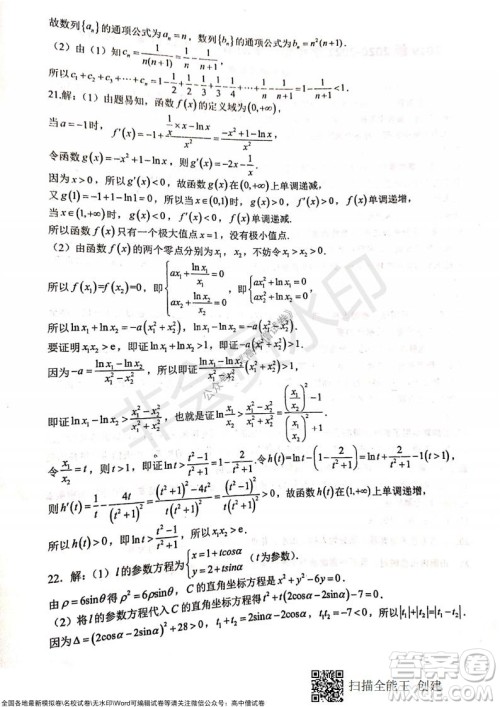 故数列{aₙ}的通项公式为aₙ=n, 数列{bₙ}的通项公式为bₙ=n²(n+1).
(2) 由(1)知cₙ=1/(n(n+1))=1/n-1/(n+1),
所以c₁+c₂+c₃+⋯+cₙ=1-1/2+1/2-1/3+⋯+1/n-1/(n+1)=1-1/(n+1)<1.
21.解:(1)由题易知,函数f(x)的定义域为(0,+∞),
当a=-1时, f′(x)=-1+(1/x×x-lnx)/x²=(-x²+1-lnx)/x².
令函数g(x)=-x²+1-lnx,所以g′(x)=-2x-1/x.
因为x>0,所以g′(x)<0,故函数g(x)在(0,+∞)上单调递减,
又g(1)=-1+1-ln1=0,所以当0<x<1时,g(x)>0,f′(x)>0,函数f(x)单调递增,
当x>1时,g(x)<0,f′(x)<0,函数f(x)单调递减.
所以函数f(x)只有一个极大值点x=1,没有极小值点.
(2)由函数f(x)的两个零点分别为x₁,x₂,不妨令x₁>x₂>0.
所以f(x₁)=f(x₂)=0,即{ax₁+lnx₁/x₁=0 ax₂+lnx₂/x₂=0 即{ax₁²+lnx₁=0 ax₂²+lnx₂=0.
所以lnx₁+lnx₂=-a(x₁²+x₂²),lnx₁-lnx₂=-a(x₁²-x₂²).
要证明x₁x₂>e,即证lnx₁+lnx₂>1,即证-a(x₁²+x₂²)>1.
因为-a=(lnx₁-lnx₂)/(x₁²-x₂²),
即证lnx₁-lnx₂>(x₁²-x₂²)/(x₁²+x₂²),也就是证lnx₁/x₂>((x₁/x₂)²-1)/((x₁/x₂)²+1)
令x₁/x₂=t,所以t>1,即证lnt>(t²-1)/(t²+1).令h(t)=lnt-(1-2/(t²+1))=lnt+2/(t²+1)-1,
则h′(t)=1/t-4t/(t²+1)²=((t²+1)²-4t²)/(t(t²+1)²)=(t²-1)²/(t(t²+1)²)>0,故函数h(t)在(1,+∞)上单调递增,
所以h(t)>0,即lnt>(t²-1)/(t²+1).所以x₁x₂>e.
22. 解:(1) l的参数方程为{x=1+tcosα y=2+tsinα (t为参数).
由ρ=6sinθ得ρ²=6ρsinθ,所以C的直角坐标方程是x²+y²-6y=0.
(2)将l的参数方程代入C的直角坐标方程得t²+t(2cosα-2sinα)-7=0.
因为Δ=(2cosα-2sinα)²+28>0,t₁t₂=-7<0,所以
非会员水印
扫描全能王 创建
全国各地最新模拟卷\名校试卷\无水印\Word可编辑试卷等请关注微信公众号:高中僧试卷